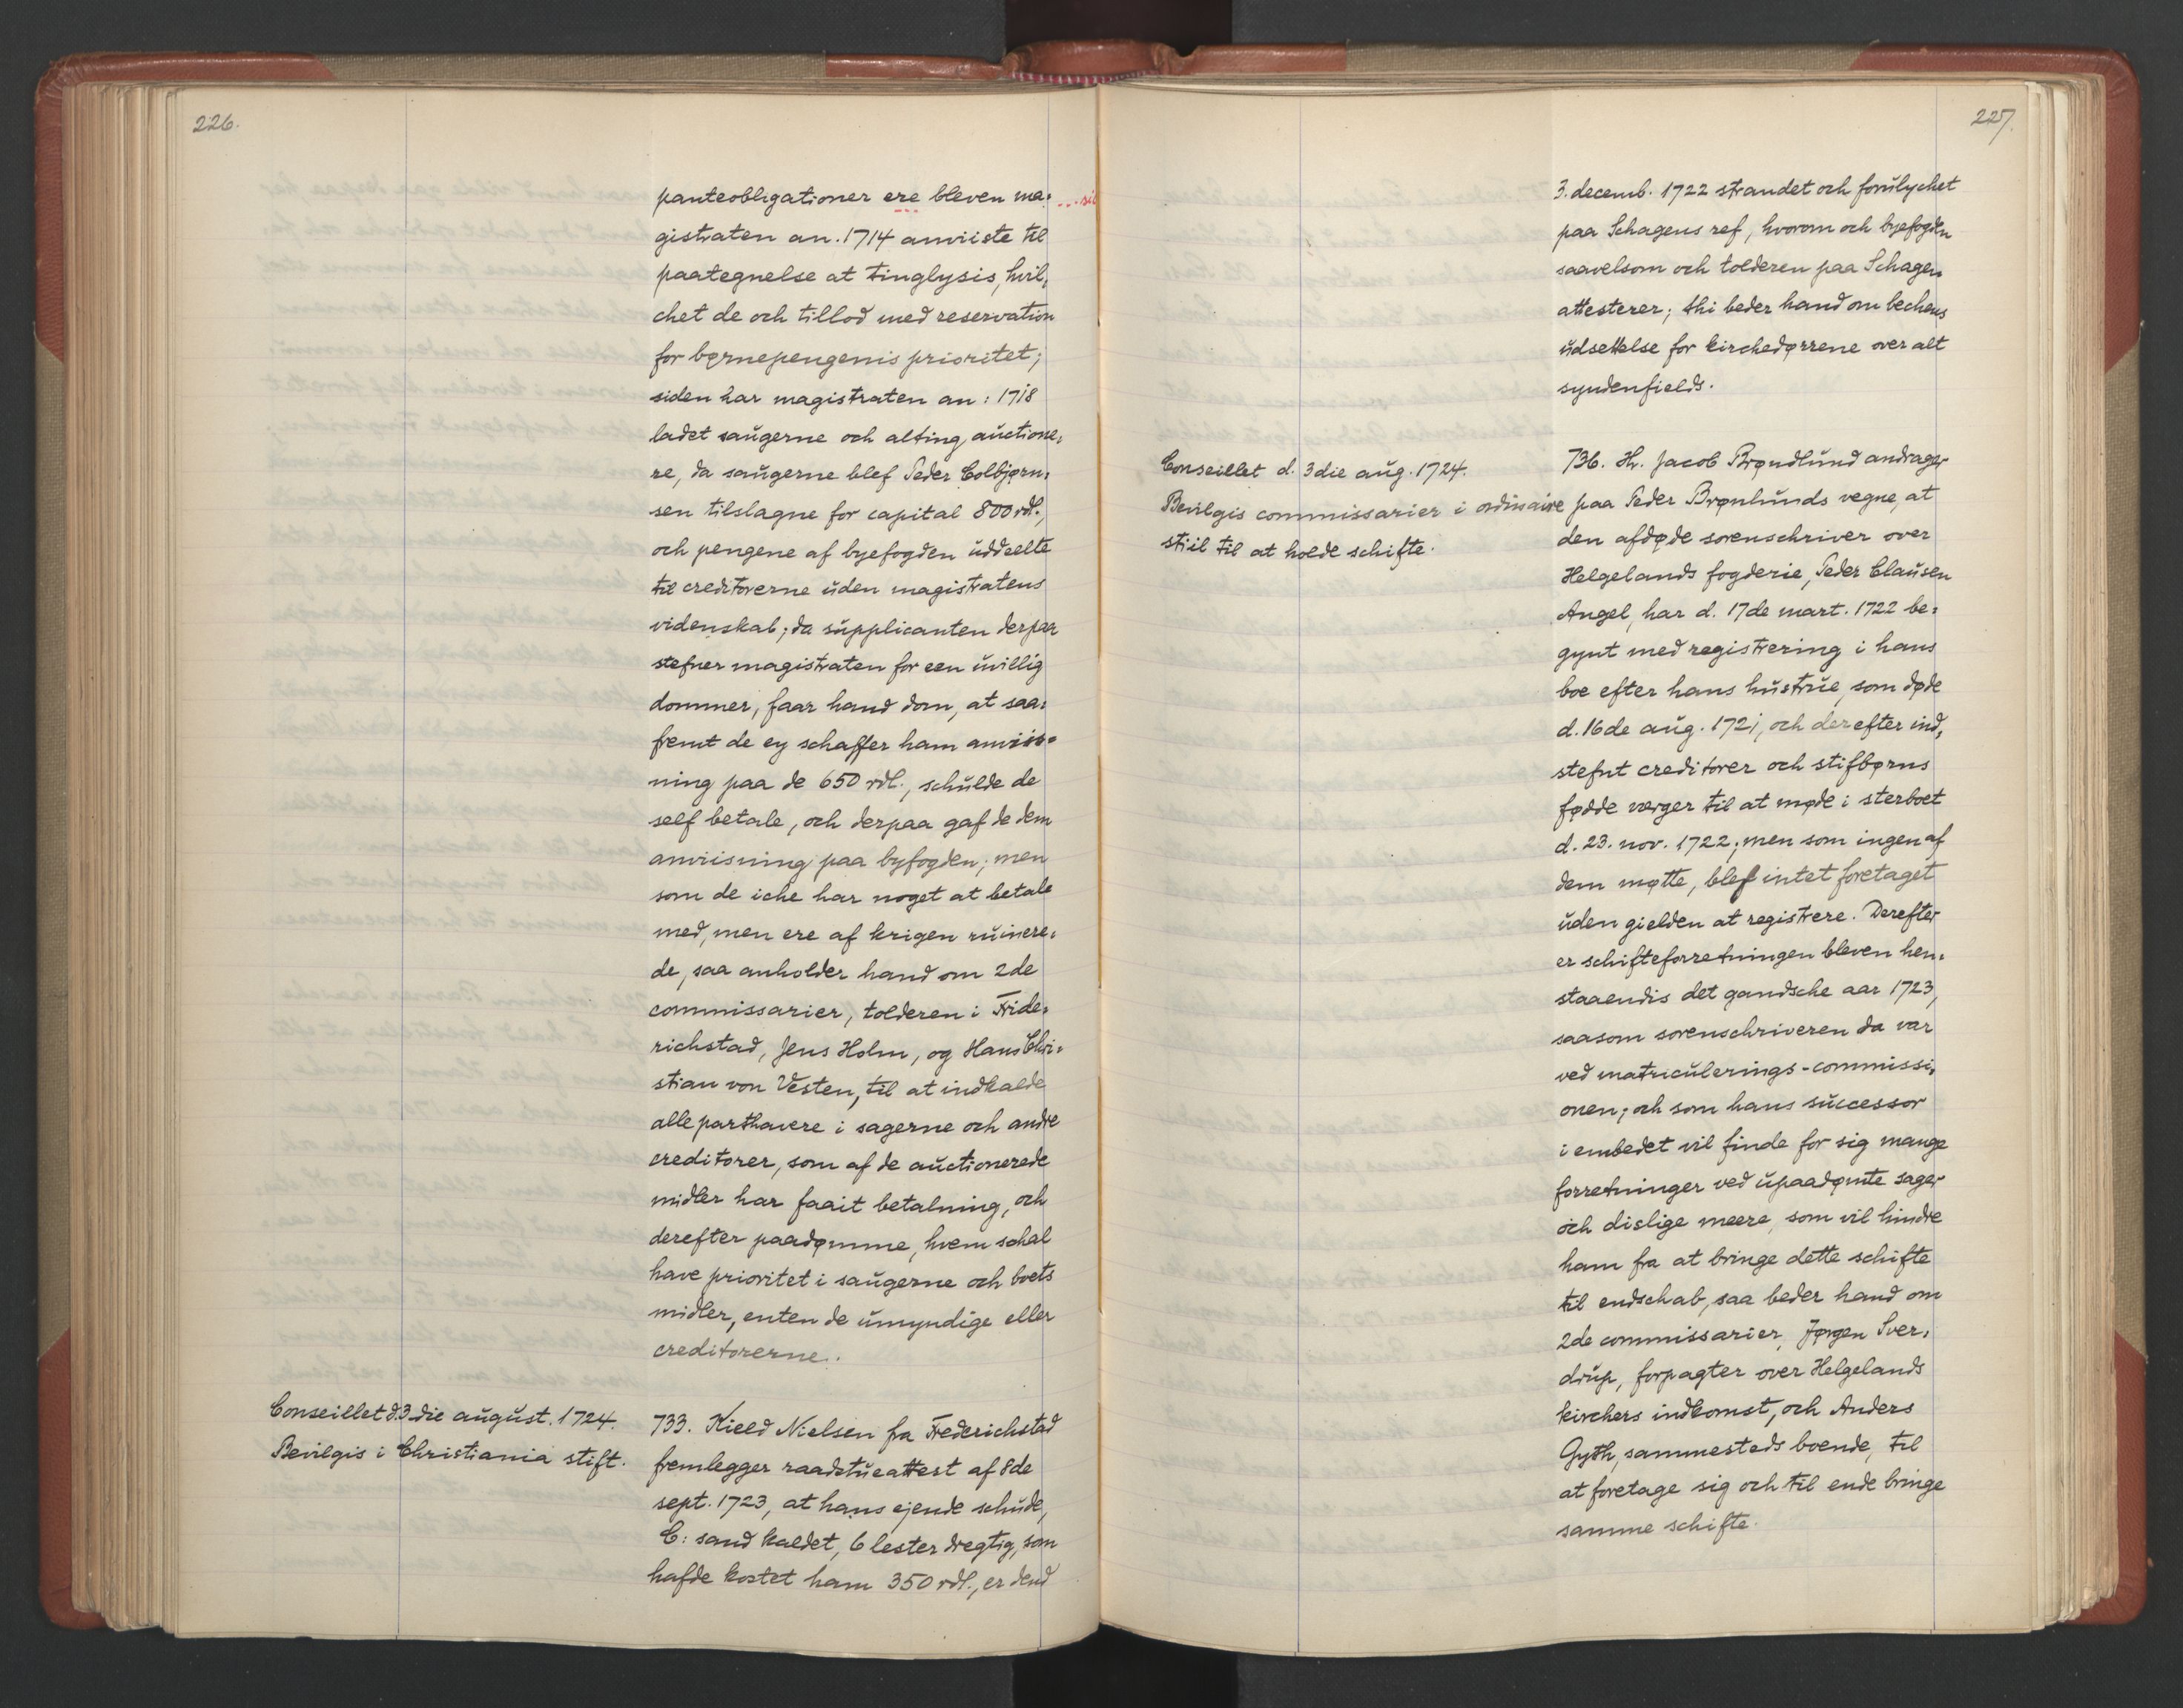 226.
panteobligationer ere bleven ma=
gistraten an. 1714 anviiste til
paategnelse at tinglysis, hvil=
chet de och tillod med reservation
for børnepengenis prioritet;
siden har magistraten an: 1718
ladet saugerne och alting auctione=
re, da saugerne blef Peder Colbjørn=
sen tilslagne for capital 800 rdl.,
och pengene af byefogden uddeelte
til creditorerne uden magistratens
videnskab; da supplicanten derpaa
stefner magistraten for een uvillig
dommer, faar hand dom, at saa=
fremt de ey schaffer ham anviis=
ning paa de 650 rdl., schulde de
self betale, och derpaa gaf de dem
anviisning paa byfogden; men
som de iche har noget at betale
med, men ere af krigen ruinere=
de, saa anholder hand om 2de
commissarier, tolderen i Fride=
richstad, Jens Holm, og Hans Chri=
stian von Vesten, til at indkalde
alle parthavere i sagerne och andre
creditorer, som af de auctionerede
midler har faait betalning, och
derefter paadømme, hvem schal
have prioritet i saugerne och boets
midler, enten de umyndige eller
creditorerne.
Conseillet d. 3die august. 1724.
Bevilgis i Christiania stift.
733. Kield Nielsen fra Frederichstad
fremlegger raadstueattest af 8de
sept. 1723, at hans ejende schude,
C: sand kaldet, 6 lester dregtig, som
hafde kostet ham 350 rdl., er dend
227.
3. decemb. 1722 strandet och forulychet
paa Schagens ref, hvorom och byefogden
saavelsom och tolderen paa Schagen
attesterer; thi beder hand om bechens
udsettelse for kirchedørrene over alt
syndenfields.
Conseillet d. 3die aug. 1724.
Bevilgis commissarier i ordinaire
stiil til at holde schifte.
736. Hr. Jacob Brøndlund andrager
paa Peder Brønlunds vegne, at
den afdøde sorenschriver over
Helgelands fogderie, Peder Clausen
Angel, har d. 17de mart. 1722 be=
gynt med registering i hans
boe efter hans hustrue, som døde
d. 16de aug. 1721, och derefter ind=
stefnt creditorer och stifbørns
fødde verger til at møde i sterboet
d. 23. nov. 1722; men som ingen af
dem møtte, blef intet foretaget
uden gielden at registrere. Derefter
er schifteforretningen bleven hen=
staaendis det gandsche aar 1723,
saasom sorenschriveren da var
ved matriculerings-commissi=
onen; och som hans successor
i embedet vil finde for sig mange
forretninger ved upaadømte sager
och dislige meere, som vil hindre
ham fra at bringe dette schifte
til endschab, saa beder hand om
2de commissarier, Jørgen Sver=
drup, forpagter over Helgelands
kirchers indkomst, och Anders
Gyth, sammesteds boende, til
at foretage sig och til ende bringe
samme schifte.